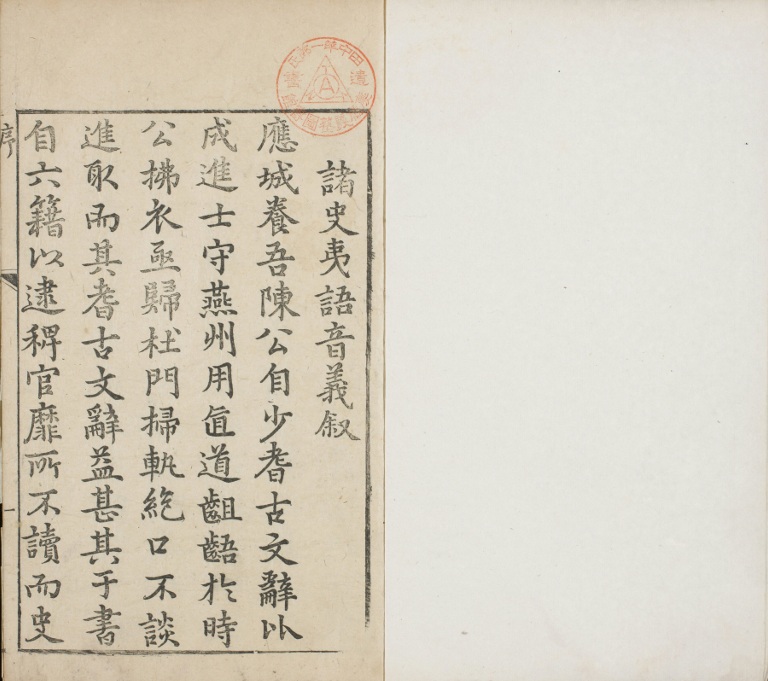 諸史夷語音義叙
應城養吾陳公自少耆古文辭以
成進士守燕州用直道齟齬於時
公拂衣亟歸杜門掃軌絶口不談
進取而其耆古文辭益甚其于書
自六籍以逮稗官靡所不讀而史
序